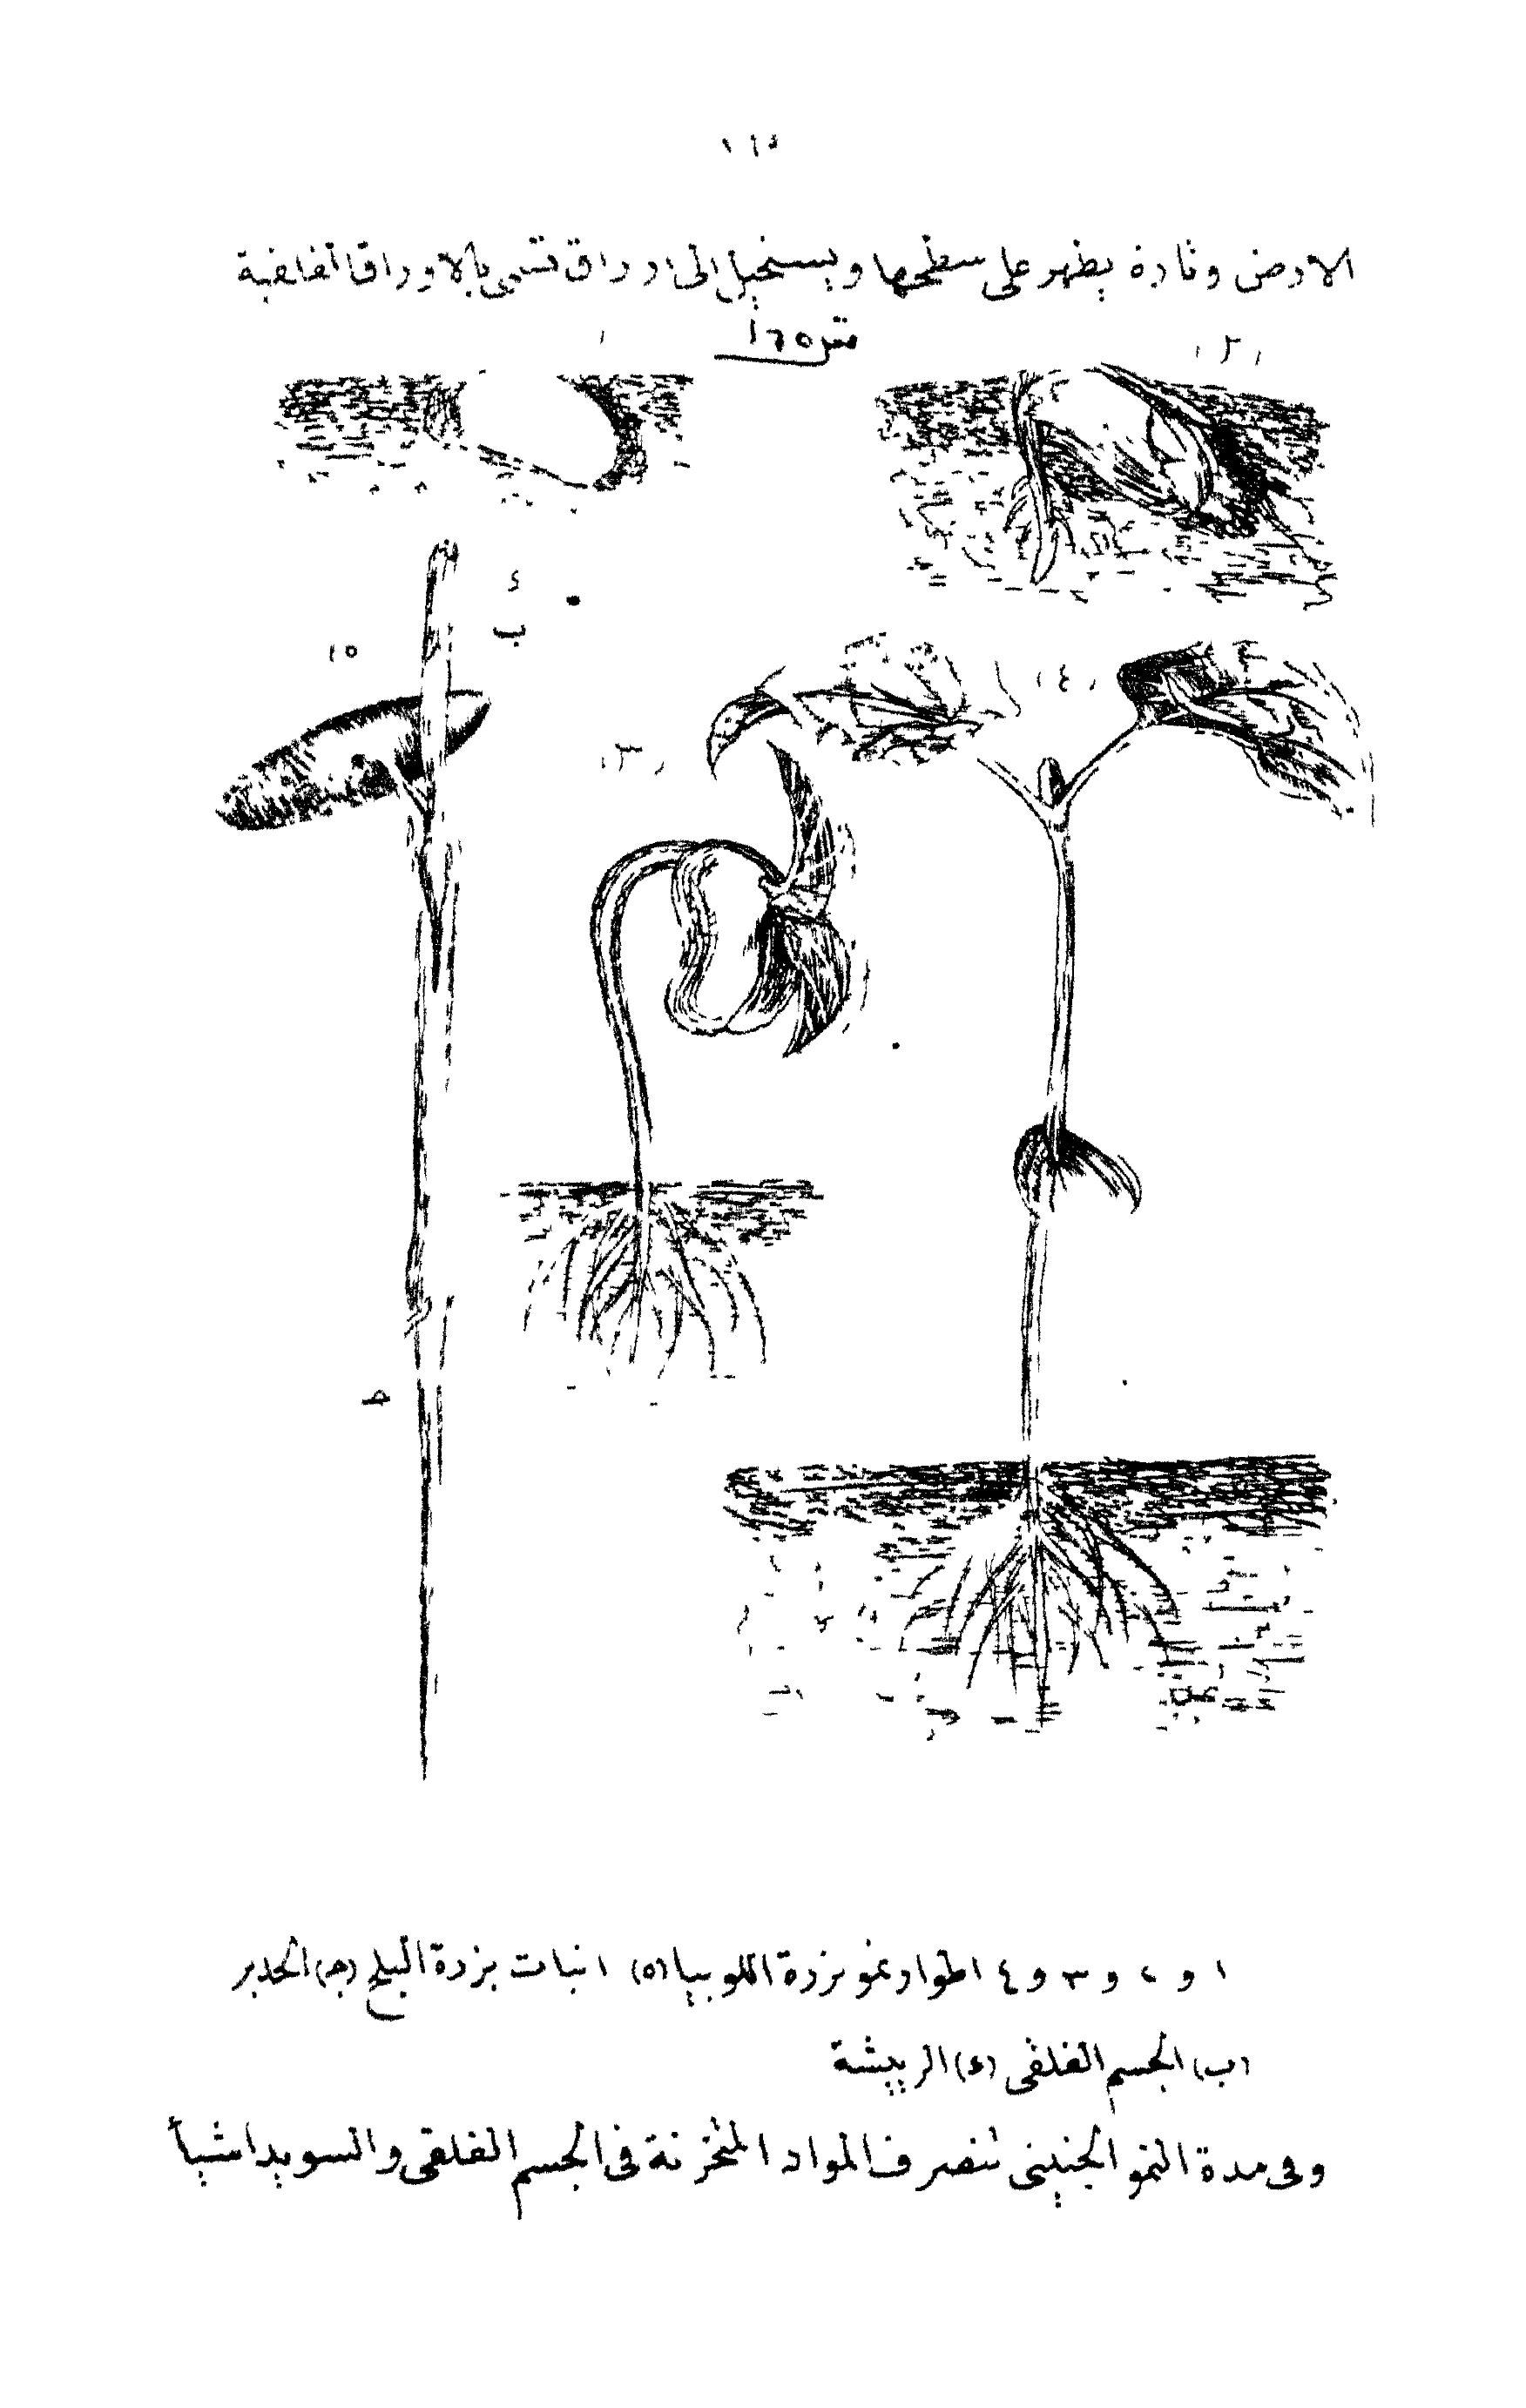 ١٦٤
الارض وتارة يظهر على سطحها ويستحيل الى اوراق تسمى بالاوراق الفلقية
ش ١٦٥
(٢)
٤
ب
(٥
(٤)
(٣)
ج
١ و ٢ و ٣ و ٤ اطوار نمو بزرة اللوبيا (٥) انبات بزرة البلح (ج) الجذير
(ب) الجسم الفلقى (ء) الريشة
وفى مدة النمو الجنينى تنصرف المواد المتخزنة فى الجسم الفلقى والسويدا شيأ